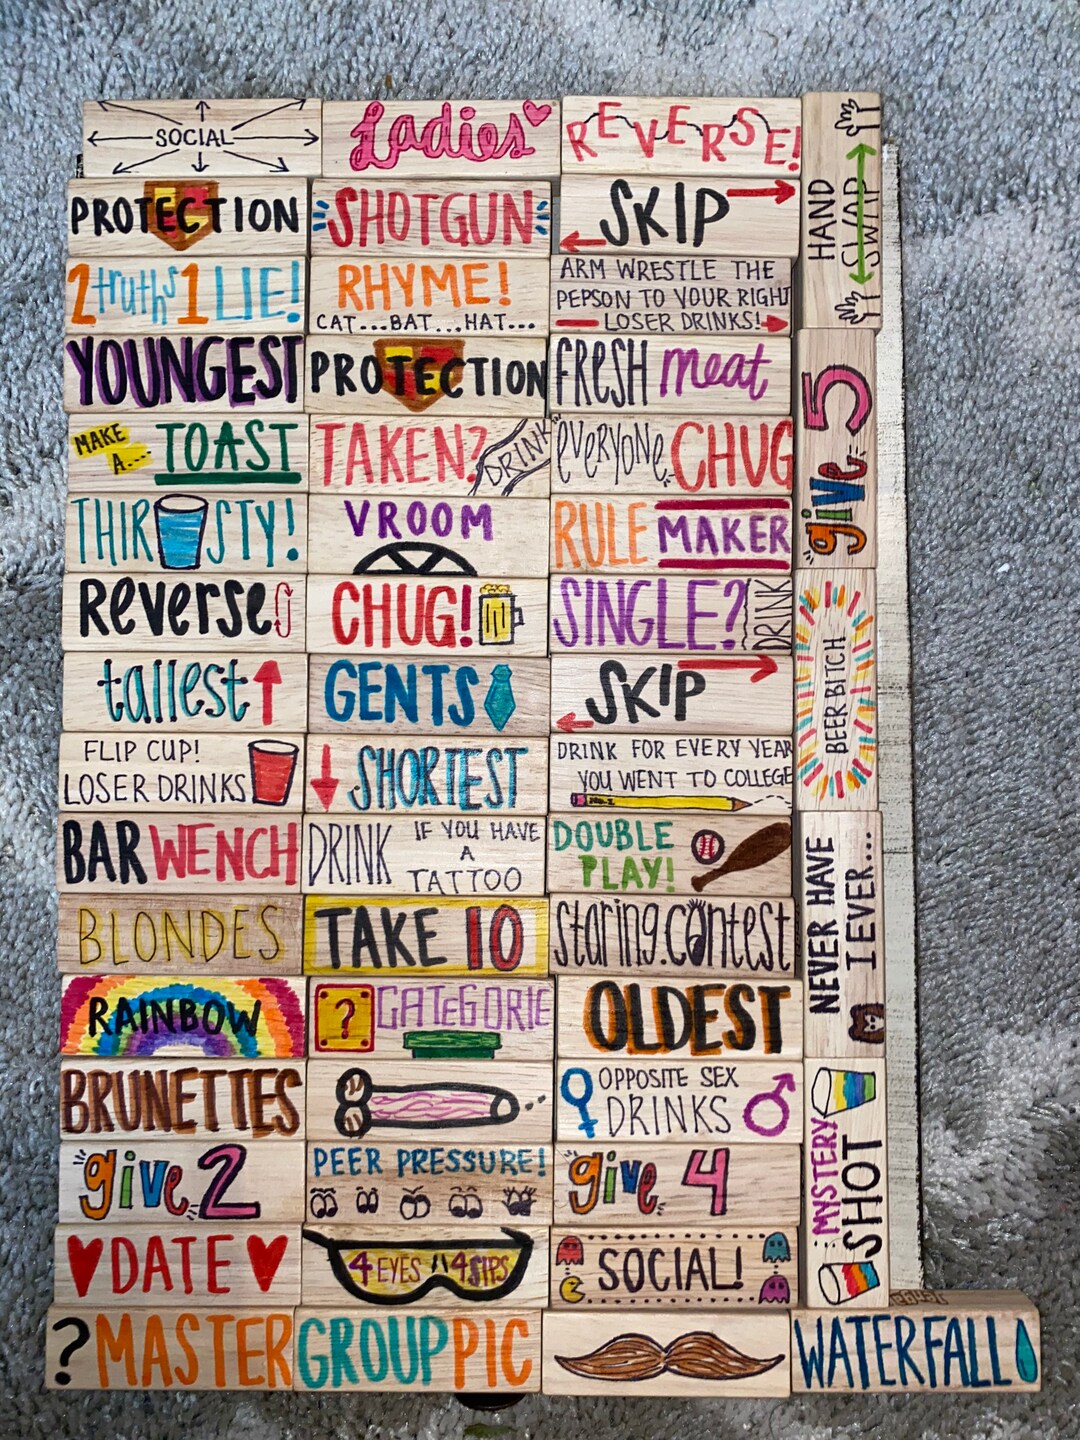 SOCIAL
Ladies
REVERSE!
HAND
SWAP
PROTECTION
SHOTGUN
SKIP
2 truths 1 LIE!
RHYME!
CAT...BAT...HAT...
ARM WRESTLE THE
PEPSON TO YOUR RIGHT
LOSER DRINKS!
YOUNGEST
PROTECTION
FRESH meat
give 5
MAKE
A....
TOAST
TAKEN?
DRINK
everyone CHUG
THIRSTY!
VROOM
RULE MAKER
Reverse
CHUG!
SINGLE?
DRINK
BEER BITCH
tallest
GENTS
SKIP
FLIP CUP!
LOSER DRINKS
SHORTEST
DRINK FOR EVERY YEAR
YOU WENT TO COLLEGE
NO.2
BAR WENCH
DRINK
IF YOU HAVE
A
TATTOO
DOUBLE
PLAY!
NEVER HAVE
I EVER...
BLONDES
TAKE 10
staring.contest
RAINBOW
?
CATEGORIE
OLDEST
BRUNETTES
OPPOSITE SEX
DRINKS
MYSTERY
SHOT
give 2
PEER PRESSURE!
give 4
DATE
4 EYES 4 SIPS
SOCIAL!
? MASTER
GROUP PIC
WATERFALL